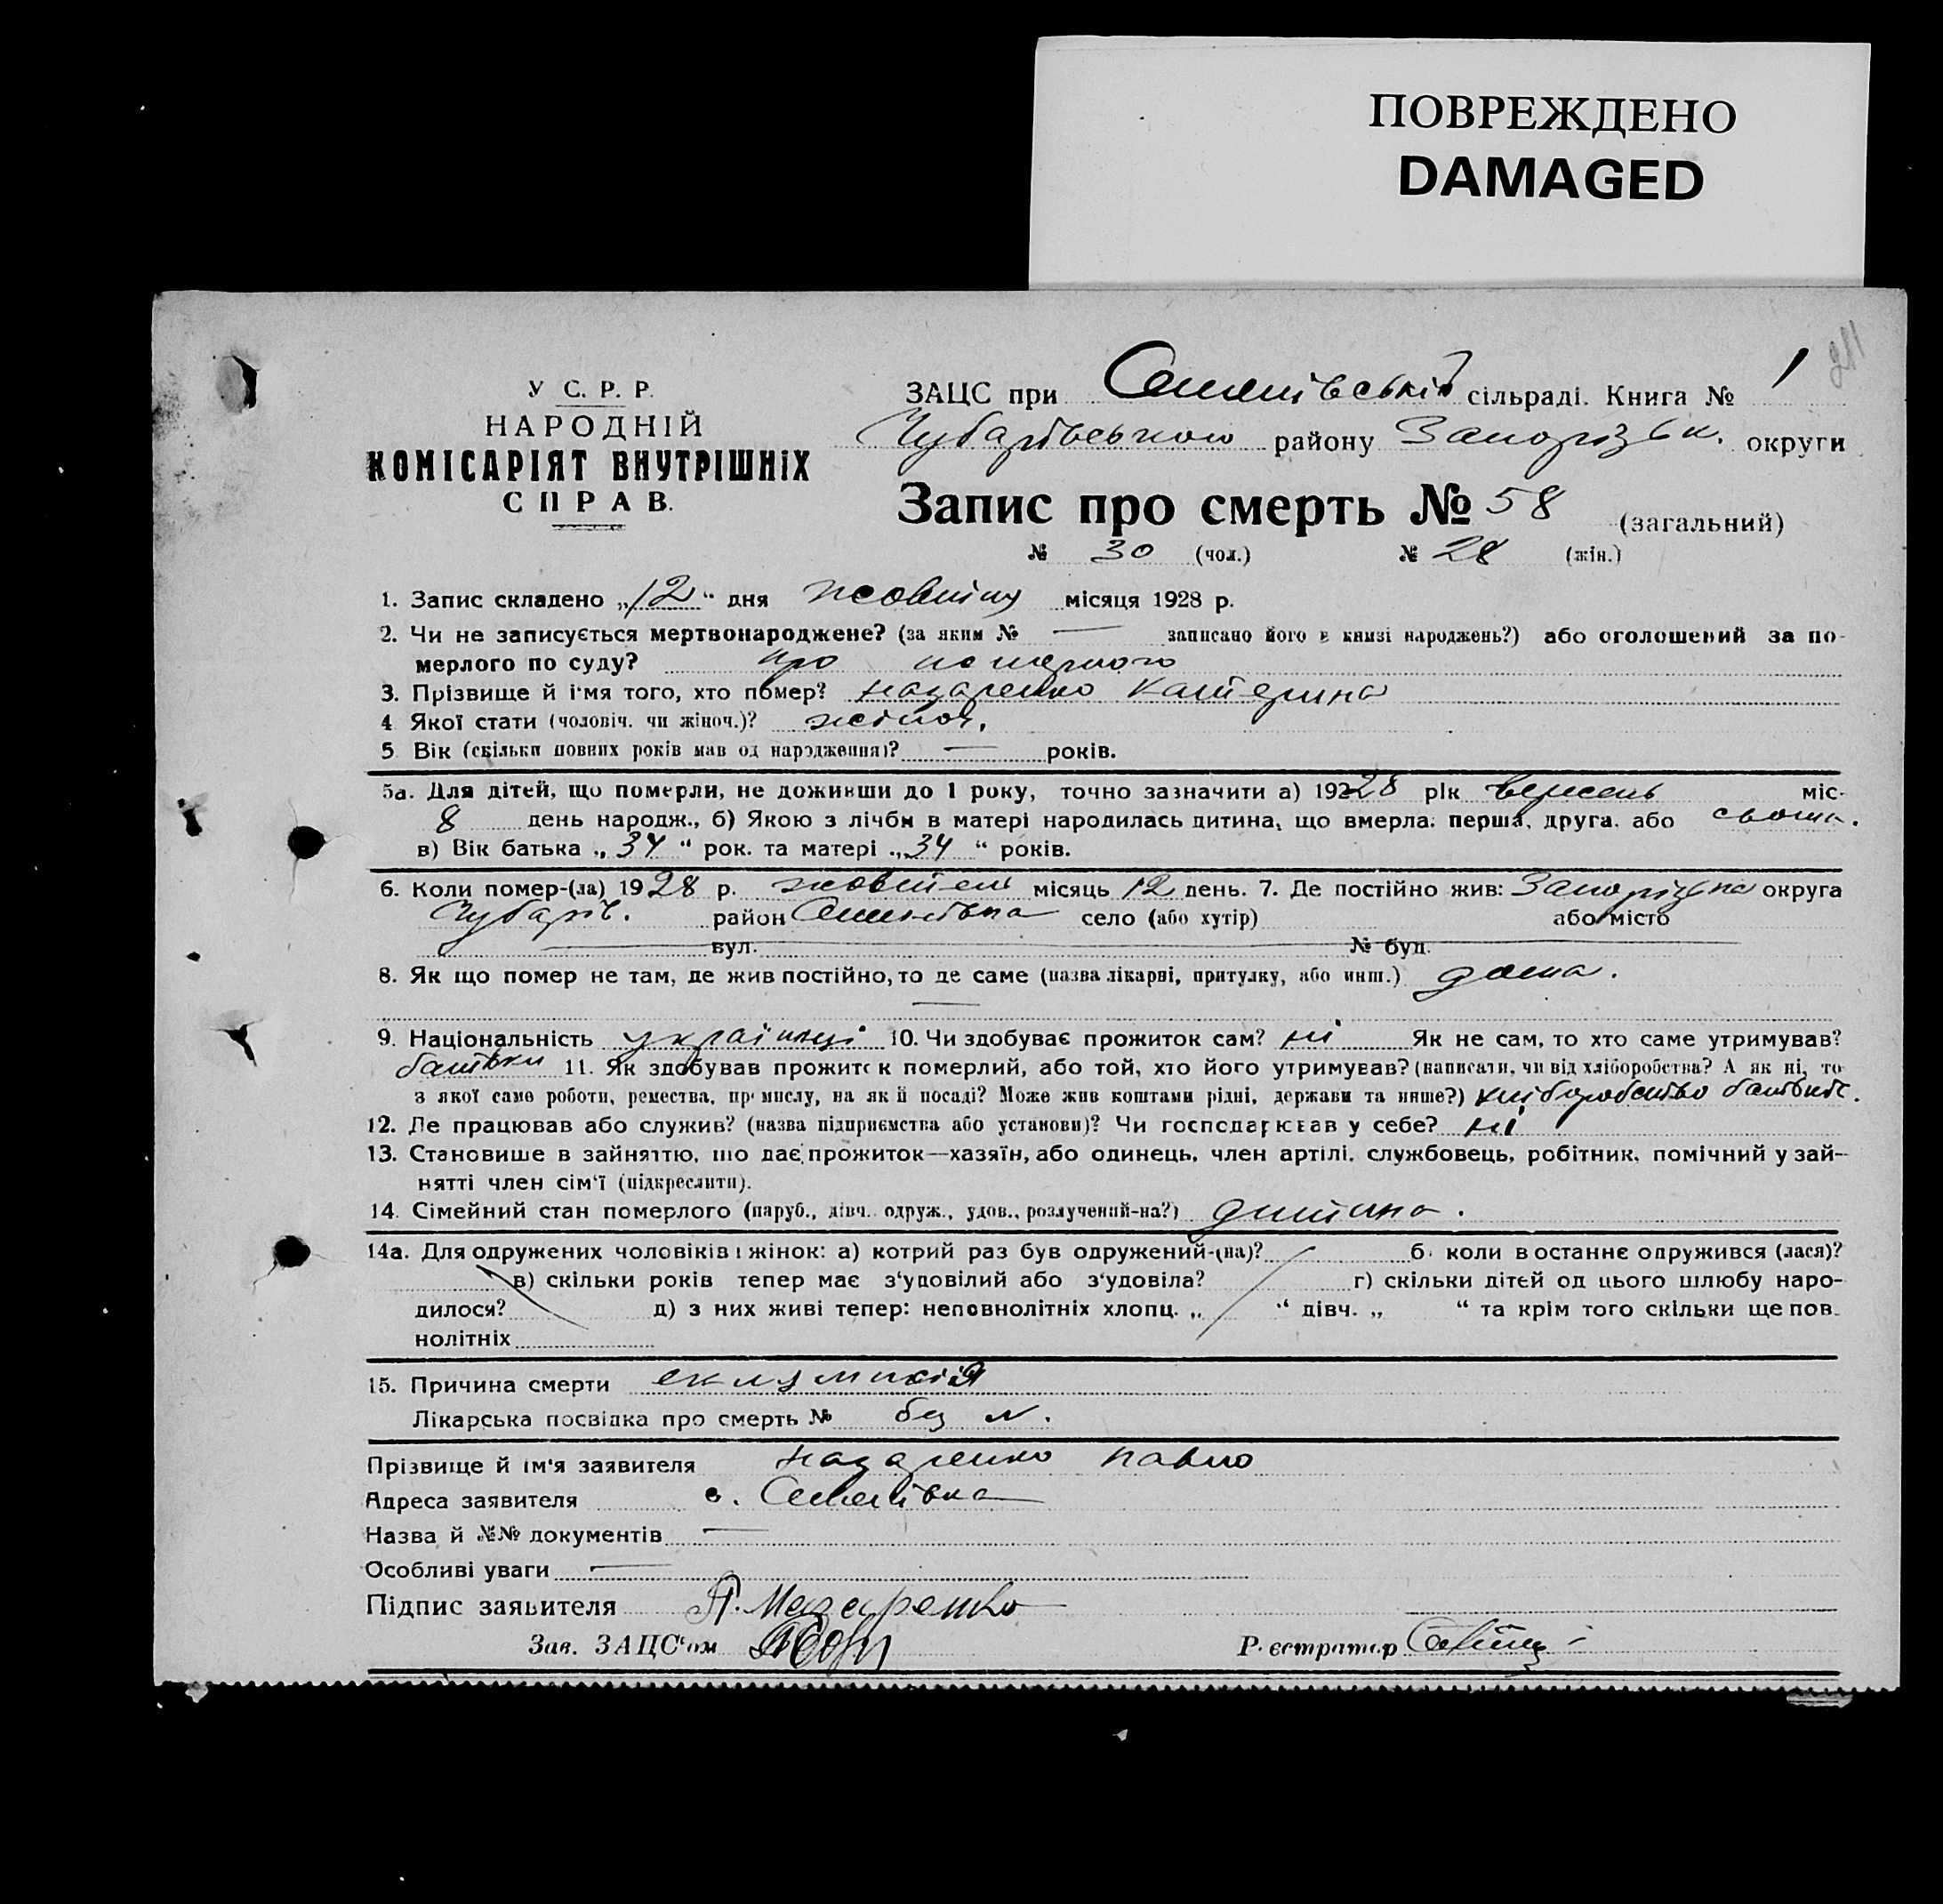 ПОВРЕЖДЕНО
DAMAGED
У С. Р. Р.
НАРОДНІЙ
КОМІСАРІЯТ ВНУТРІШНІХ
СПРАВ.
ЗАЦС при сільраді. Книга № 1
Чубарівського району Запорізьк. округи
Запис про смерть № 58 (загальний)
№ 30 (чол.) № 28 (жін.)
1. Запис складено „12“ дня жовтня місяця 1928 р.
2. Чи не записується мертвонароджене? (за яким № — записано його в книзі народжень?) або оголошений за по-
мерлого по суду? про померлого
3. Прізвище й і'мя того, хто помер? Назаренко Катерина
4 Якої стати (чоловіч. чи жіноч.)? жіноч.
5 Вік (скільки повних років мав од народження)? — років.
5а. Для дітей, що померли, не доживши до 1 року, точно зазначити а) 19228 рік вересень міс.
8 день народж., б) Якою з лічби в матері народилась дитина, що вмерла: перша, друга. або сьома.
в) Вік батька „34“ рок. та матері „34“ років.
6. Коли помер-(ла) 1928 р. жовтень місяць 12 день. 7. Де постійно жив: Запорізька округа
Чубарів. район Семенівка село (або хутір) або місто
вул. № буд.
8. Як що помер не там, де жив постійно, то де саме (назва лікарні, притулку, або инш.) дома.
—
9. Національність українці 10. Чи здобуває прожиток сам? ні Як не сам, то хто саме утримував?
батьки 11. Як здобував прожиток померлий, або той, хто його утримував? (написати, чи від хліборобства? А як ні, то
з якої саме роботи, ремества, промислу, на якій посаді? Може жив коштами рідні, держави та инше?) хліборобство батьків.
12. Де працював або служив? (назва підприємства або установи)? Чи господарював у себе? ні
13. Становише в зайняттю, що дає прожиток—хазяїн, або одинець, член артілі, службовець, робітник, помічний у зай-
нятті член сім'ї (підкреслити).
14. Сімейний стан померлого (паруб., дівч. одруж., удов., розлучений-на?) дитина.
14а. Для одружених чоловіків і жінок: а) котрий раз був одружений-(на)? б. коли в останнє одружився (лася)?
в) скільки років тепер має з'удовілий або з'удовіла? г) скільки дітей од цього шлюбу наро-
дилося? д) з них живі тепер: неповнолітніх хлопц. „ “ дівч. „ “ та крім того скільки ще пов.
нолітніх
15. Причина смерти
Лікарська посвідка про смерть № без №.
Прізвище й ім'я заявителя Назаренко Павло
Адреса заявителя с. Семенівка
Назва й №№ документів —
Особливі уваги —
Підпис заявителя П. Назаренко
Зав. ЗАЦС'ом
Реєстратор